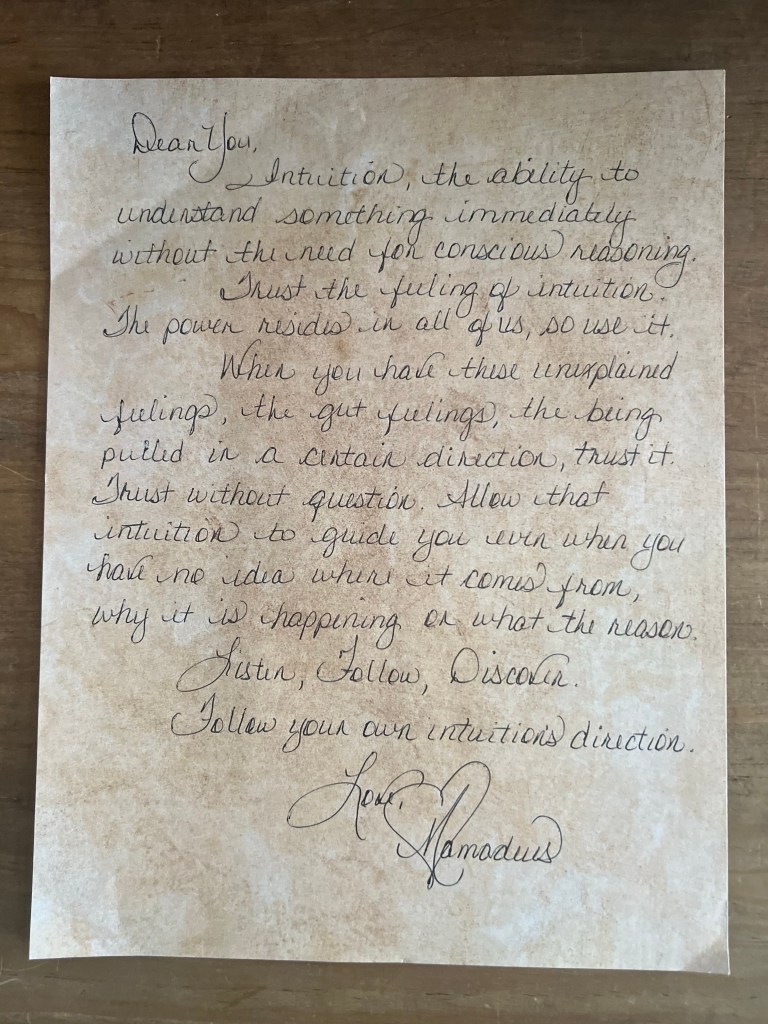 Dear You,
Intuition, the ability to
understand something immediately
without the need for conscious reasoning.
Trust the feeling of intuition.
The power resides in all of us, so use it.
When you have these unexplained
feelings, the gut feelings, the being
pulled in a certain direction, trust it.
Trust without question. Allow that
intuition to guide you even when you
have no idea where it comes from,
why it is happening or what the reason.
Listen, Follow, Discover.
Follow your own intuitions direction.
Love,